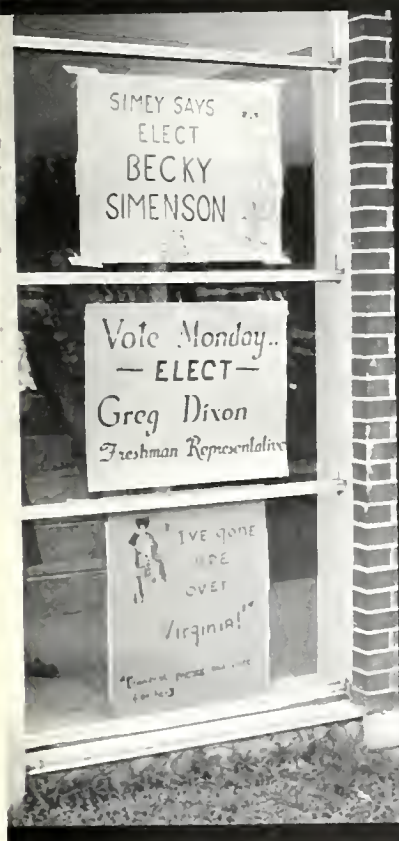 SIMEY SAYS
ELECT
BECKY
SIMENSON
Vote Monday..
— ELECT —
Greg Dixon
Freshman Representative
"I'VE gone
APE
over
Virginia!"*